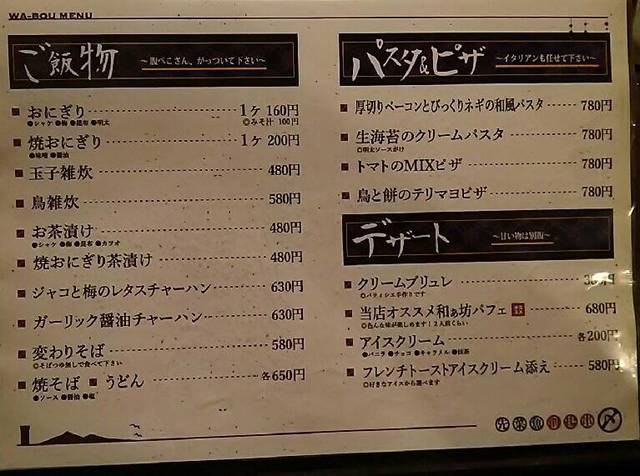 WA-BOU MENU
ご飯物
～腹ぺこさん、がっついて下さい～
■ おにぎり 1ヶ 160円
●シャケ ●梅 ●昆布 ●明太 ◎みそ汁 100円
■ 焼おにぎり 1ヶ 200円
●味噌 ●醤油
■ 玉子雑炊 480円
■ 鳥雑炊 580円
■ お茶漬け 480円
●シャケ ●梅 ●昆布 ●カツオ
■ 焼おにぎり茶漬け 480円
■ ジャコと梅のレタスチャーハン 630円
■ ガーリック醤油チャーハン 630円
■ 変わりそば 580円
◎そばつゆ無しで食べて下さい
■ 焼そば ■ うどん 各650円
●ソース ●醤油 ●塩
パスタ&ピザ
～イタリアンも任せて下さい～
■ 厚切りベーコンとびっくりネギの和風パスタ 780円
■ 生海苔のクリームパスタ 780円
◎明太ソースがけ
■ トマトのMIXピザ 780円
■ 鳥と餅のテリマヨピザ 780円
デザート
～甘い物は別腹～
■ クリームブリュレ
◎パティシエ手作りです
■ 当店オススメ和ぁ坊パフェ 680円
◎色んな味が楽しめます！2人前くらい
■ アイスクリーム 各200円
●バニラ ●チョコ ●キャラメル ●抹茶
■ フレンチトーストアイスクリーム添え 580円
◎好きなアイスから選べます